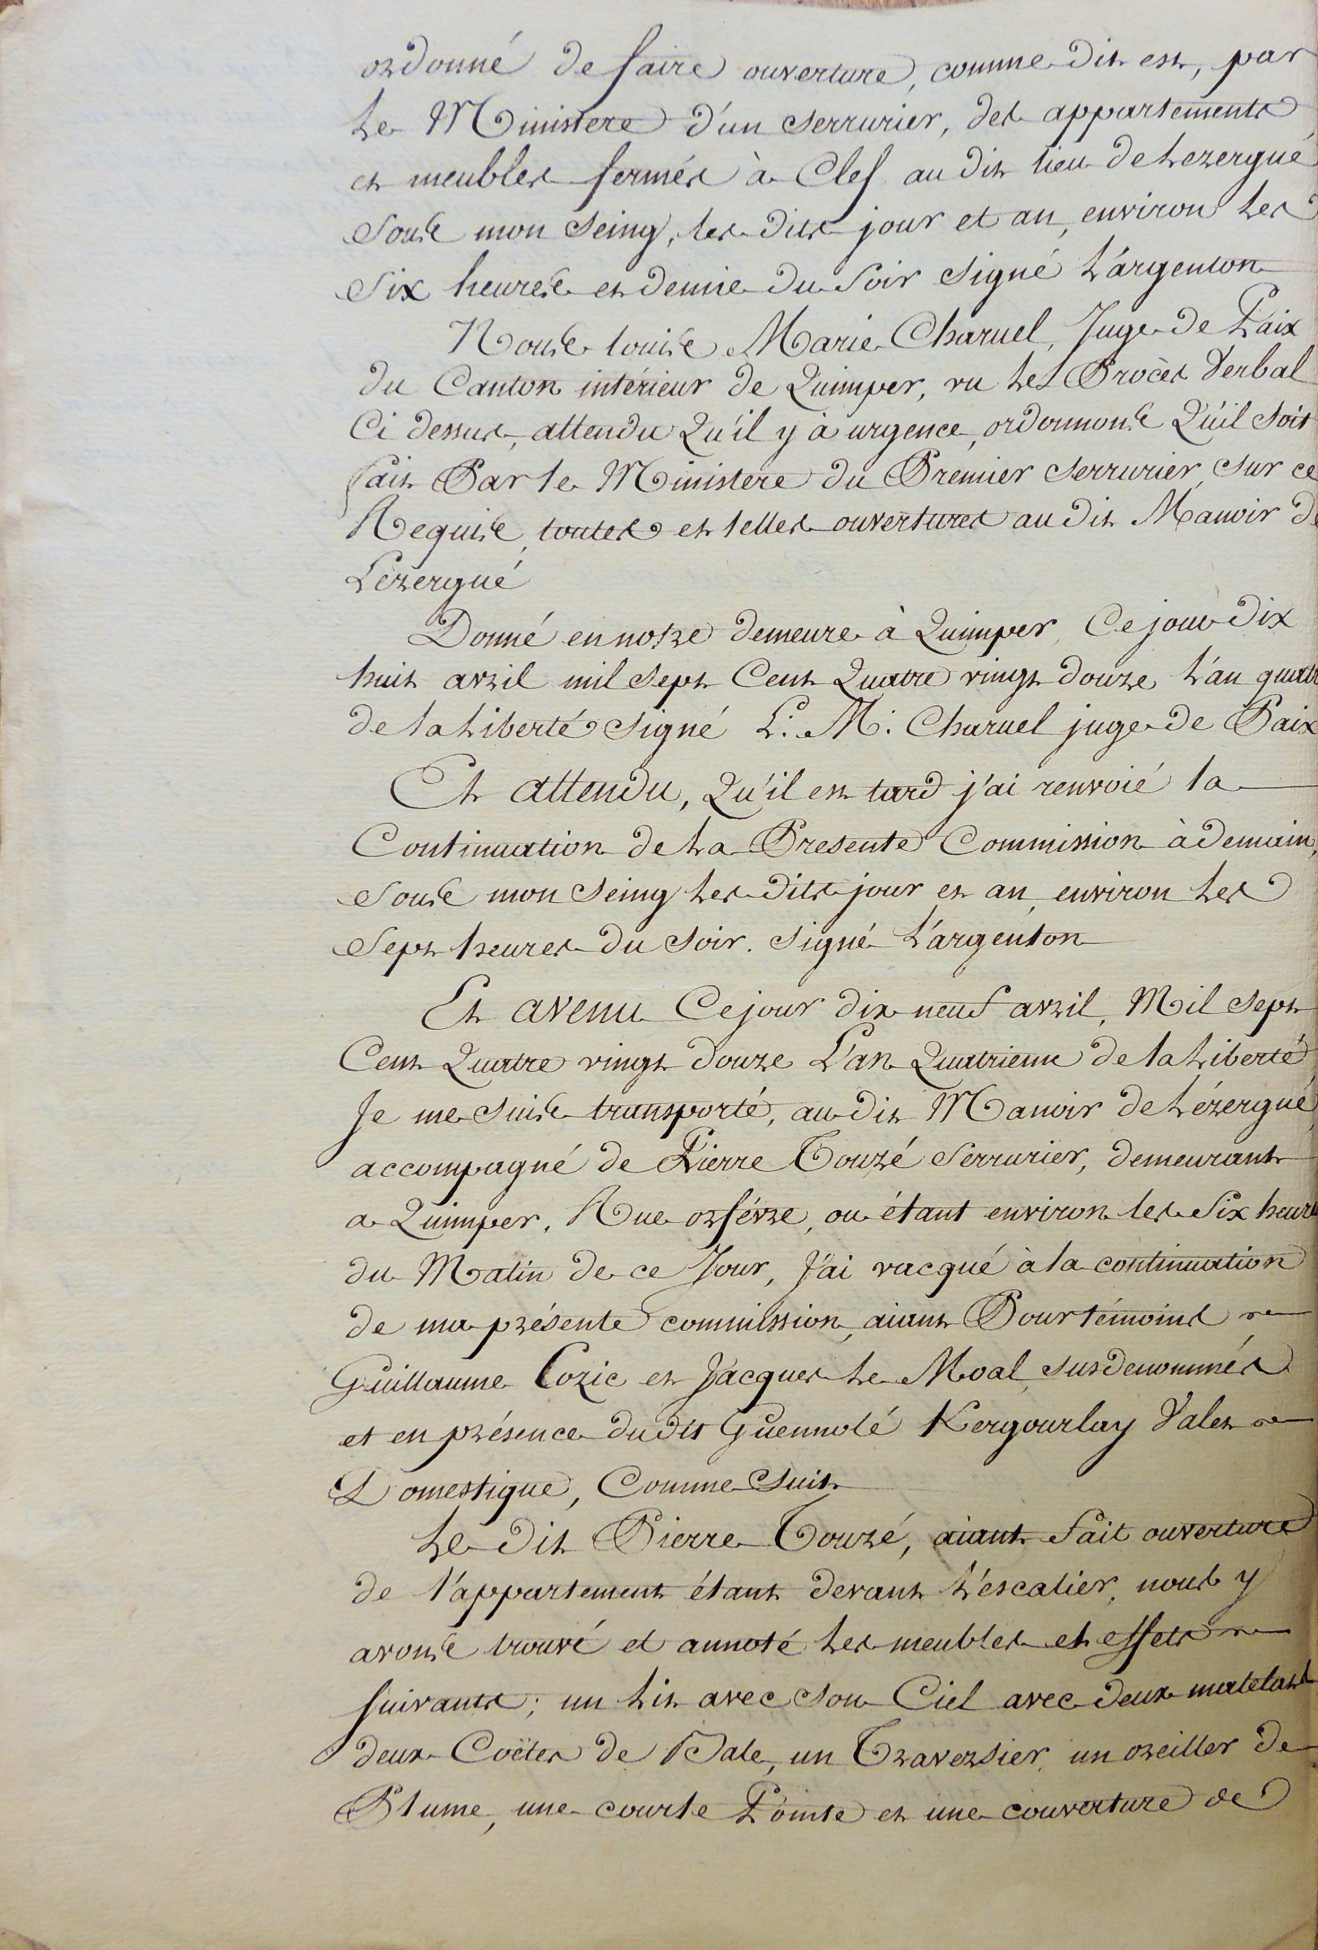 ordonné de faire ouverture, comme dit est, par
Le Ministere d'un serrurier, des appartements
et meubles fermés à Clef au dit lieu de Lezergué
Sous mon Seing, les dits jour et an, environ Les
Six heures et demie du Soir signé L'argenton
Nous louis Marie Charuel, Juge de Paix
du Canton intérieur de Quimper, vu Les Procès Verbal
Ci dessus, attendu Qu'il y à urgence, ordonnons Qu'il soit
fait Par le Ministere du Premier serrurier, sur ce
Requis, toutes et telles ouvertures au dit Manoir de
Lézergué
Donné en notre demeure à Quimper, Ce jour dix
huit avril mil sept Cent Quatre vingt douze L'an quatre
de la Liberté signé L: M: Charuel juge de Paix
Et attendu, Qu'il est tard j'ai renvoié la
Continuation de La Presente Commission à demain,
Sous mon Seing Les dits jour et an environ Les
Sept heures du soir. signé L'argenton
Et avenu Ce jour dix neuf avril, Mil sept
Cent Quatre vingt douze L'an Quatrieme de la Liberté
Je me suis transporté, au dit Manoir de Lézergué
accompagné de Pierre Touzé Serrurier, demeurant
a Quimper, Rue orfévre, ou étant environ les Six heures
du Matin de ce Jour, J'ai vacqué à la continuation
de ma présente commission, aiant Pour témoins
Guillaume Cozic et Jacques Le Moal susdenommés
et en présence du dit Guennolé Kergourlay Valet
Domestique, Comme suit
Le dit Pierre Touzé, aiant fait ouverture
de l'appartement étant devant L'escalier, nous y
avons trouvé et annoté Les meubles et effets
suivants; un Lit avec son Ciel avec deux matelas
deux Coëtes de Bale, un Traversier, un oreiller de
Plume, une courte Pointe et une couverture de